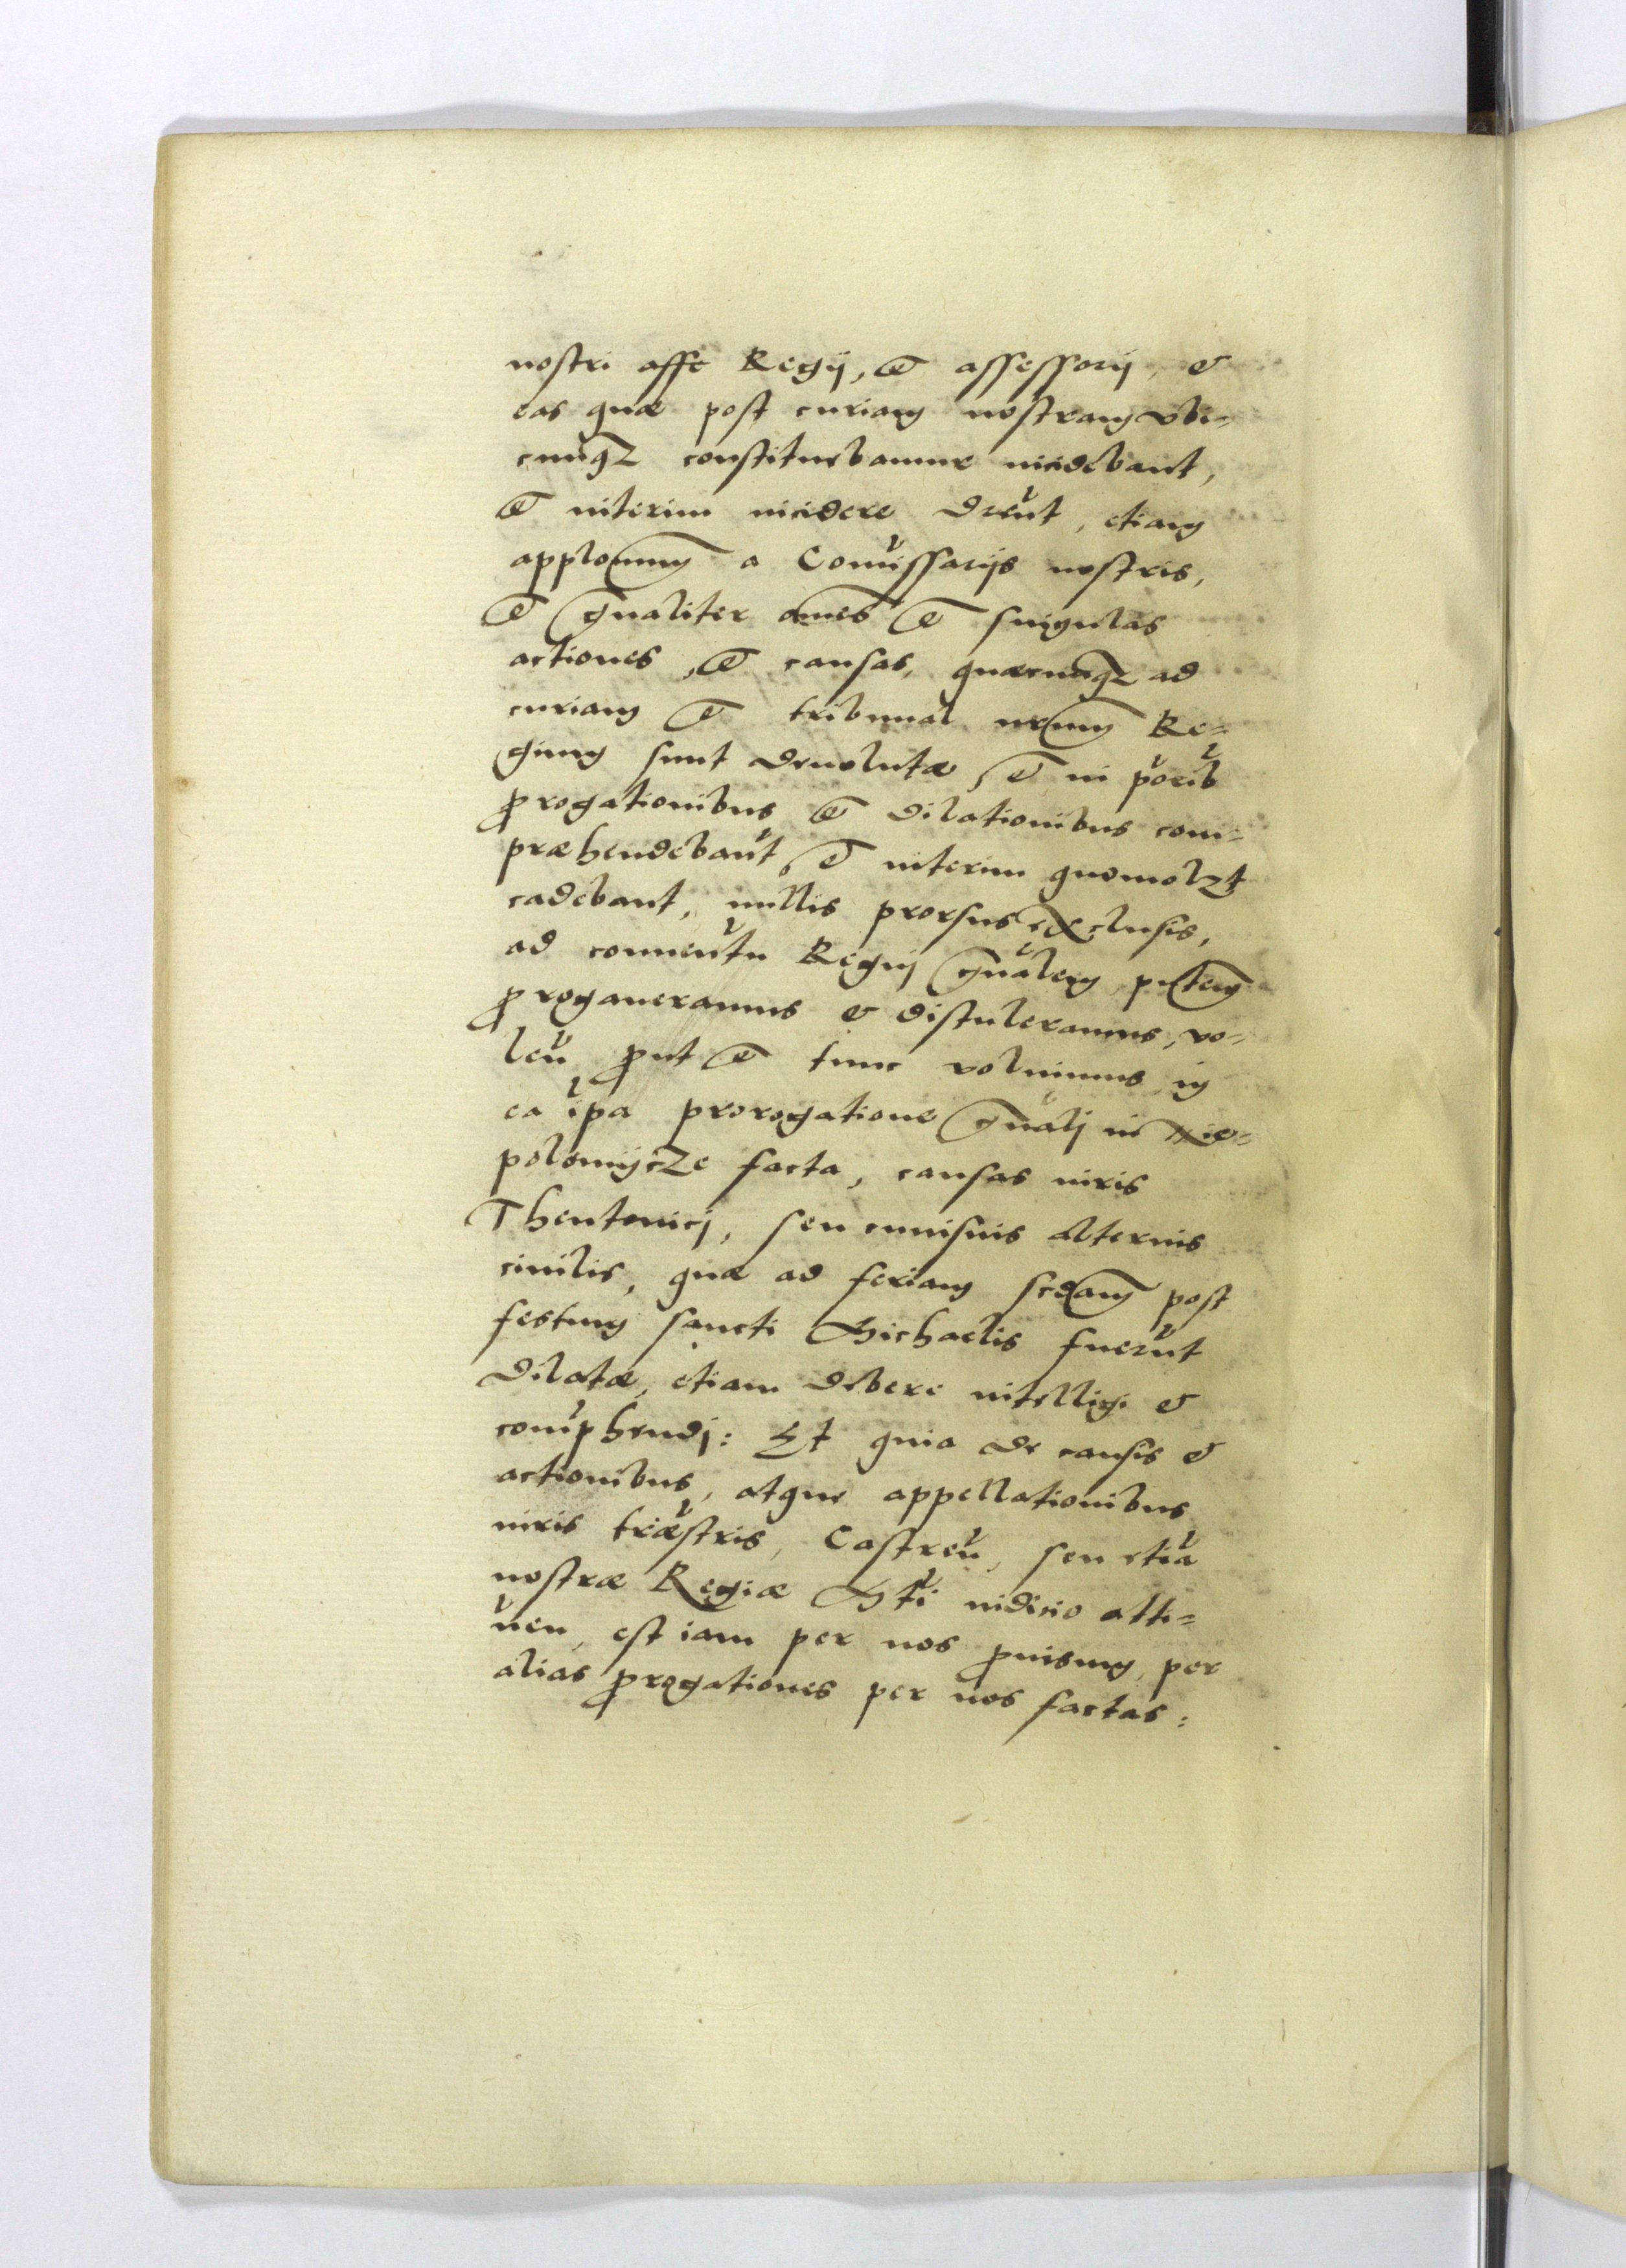 nostri asste Regij, et assessorij, et
eas quæ post curiam nostram vbi-
cunqz constituebamur incidebant,
et interim incidere deberent, etiam
applonum a Comissarijs nostris,
et gnaliter omes et singulas
actiones, et causas, quæcunqz ad
curiam et tribunal nrum Re-
gium sunt deuolutæ, et in priorib
progationibus et dilationibus com-
præhendebant, et interim quomolzt
cadebant, nullis prorsus exclusis,
ad conuentu Regnj gnalem pntem
progaueramus et distuleramus, vo-
len prout et tunc voluimus in
ea ipa prorogatione gnalj in Nie-
polomijcze facta, causas iuris
Theutonicj, seu cuiusuis alterius
ciuilis, quæ ad feriam scdam post
festum sancti Michaelis fuerut
dilatæ, etiam debere intelligi et
comphendj: Et quia de causis et
actionibus, atque appellationibus
iuris træstris, Castren, seu etia
nostræ Regiæ Mti iudicio atti-
nen, est iam per nos prouisum, per
alias progationes per nos factas: